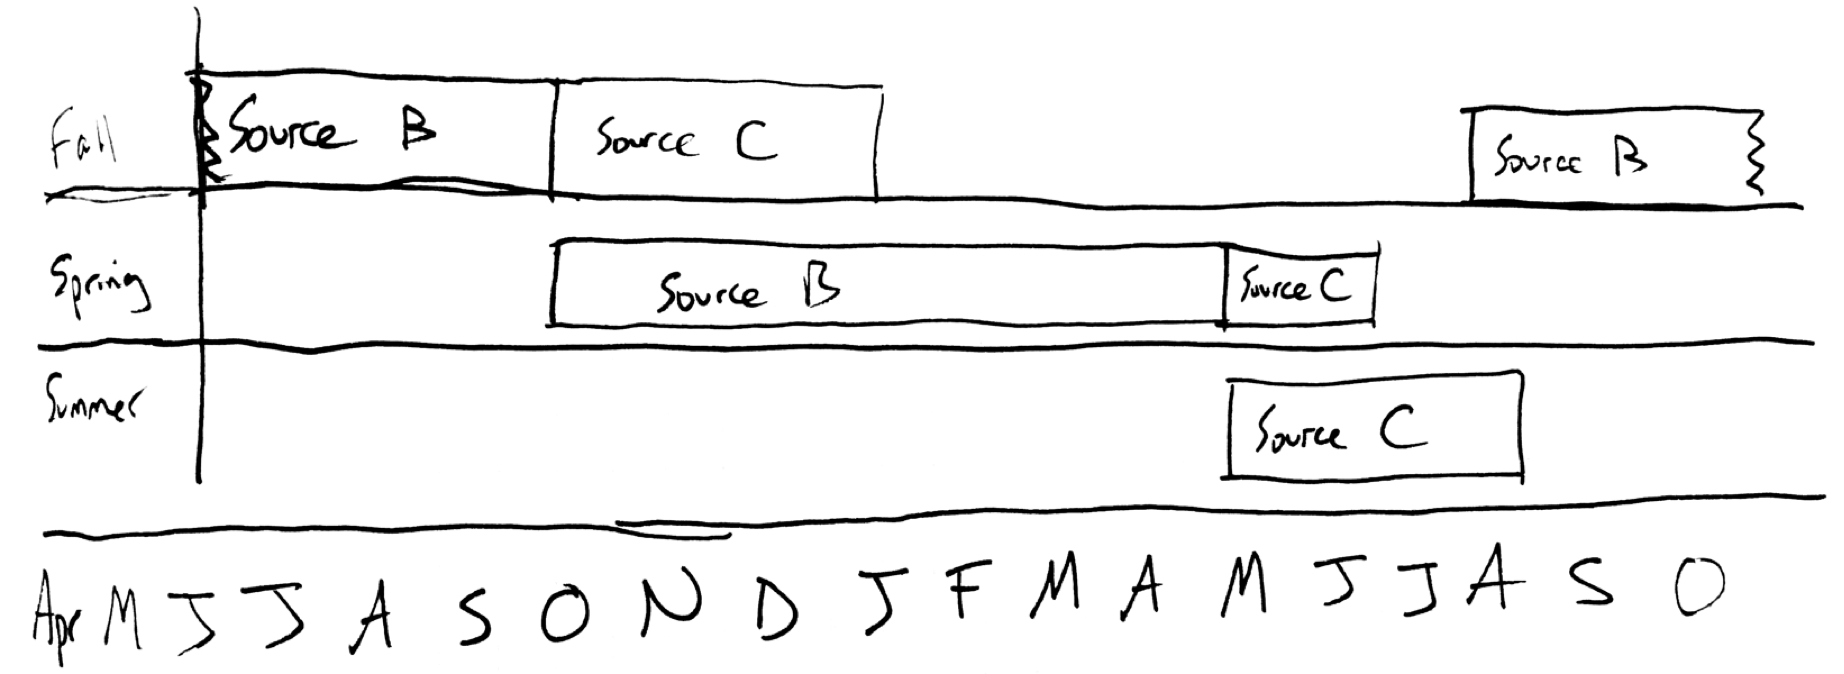 Fall Source B Source C Source B
Spring Source B Source C
Summer Source C
Apr M J J A S O N D J F M A M J J A S O